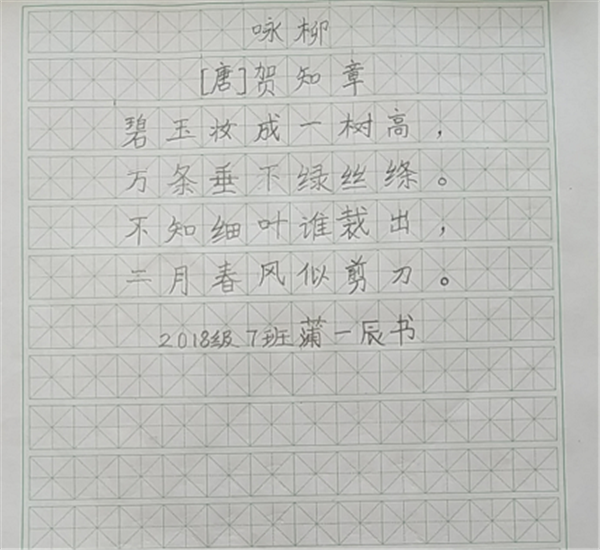 咏柳
[唐]贺知章
碧玉妆成一树高，
万条垂下绿丝绦。
不知细叶谁裁出，
二月春风似剪刀。
2018级7班蒲一辰书